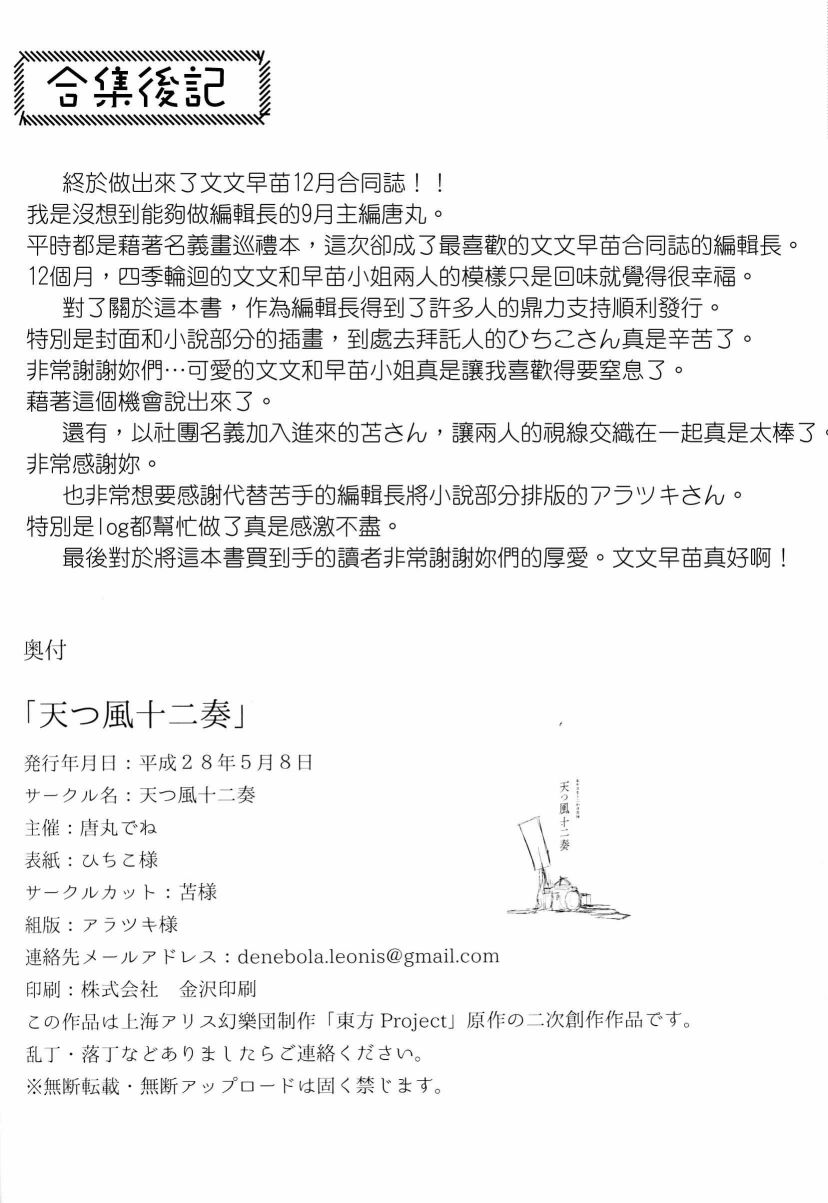 合集後記
終於做出來了文文早苗12月合同誌！！
我是沒想到能夠做編輯長的9月主編唐丸。
平時都是藉著名義畫巡禮本，這次卻成了最喜歡的文文早苗合同誌的編輯長。
12個月，四季輪迴的文文和早苗小姐兩人的模樣只是回味就覺得很幸福。
對了關於這本書，作為編輯長得到了許多人的鼎力支持順利發行。
特別是封面和小說部分的插畫，到處去拜託人的ひちこさん真是辛苦了。
非常謝謝妳們…可愛的文文和早苗小姐真是讓我喜歡得要窒息了。
藉著這個機會說出來了。
還有，以社團名義加入進來的苦さん，讓兩人的視線交織在一起真是太棒了。
非常感謝妳。
也非常想要感謝代替苦手的編輯長將小說部分排版的アラツキさん。
特別是log都幫忙做了真是感激不盡。
最後對於將這本書買到手的讀者非常謝謝妳們的厚愛。文文早苗真好啊！
奥付
「天つ風十二奏」
発行年月日：平成２８年５月８日
サークル名：天つ風十二奏
主催：唐丸でね
表紙：ひちこ様
サークルカット：苦様
組版：アラツキ様
連絡先メールアドレス：denebola.leonis@gmail.com
印刷：株式会社　金沢印刷
この作品は上海アリス幻樂団制作「東方 Project」原作の二次創作作品です。
乱丁・落丁などありましたらご連絡ください。
※無断転載・無断アップロードは固く禁じます。
天つ風十二奏